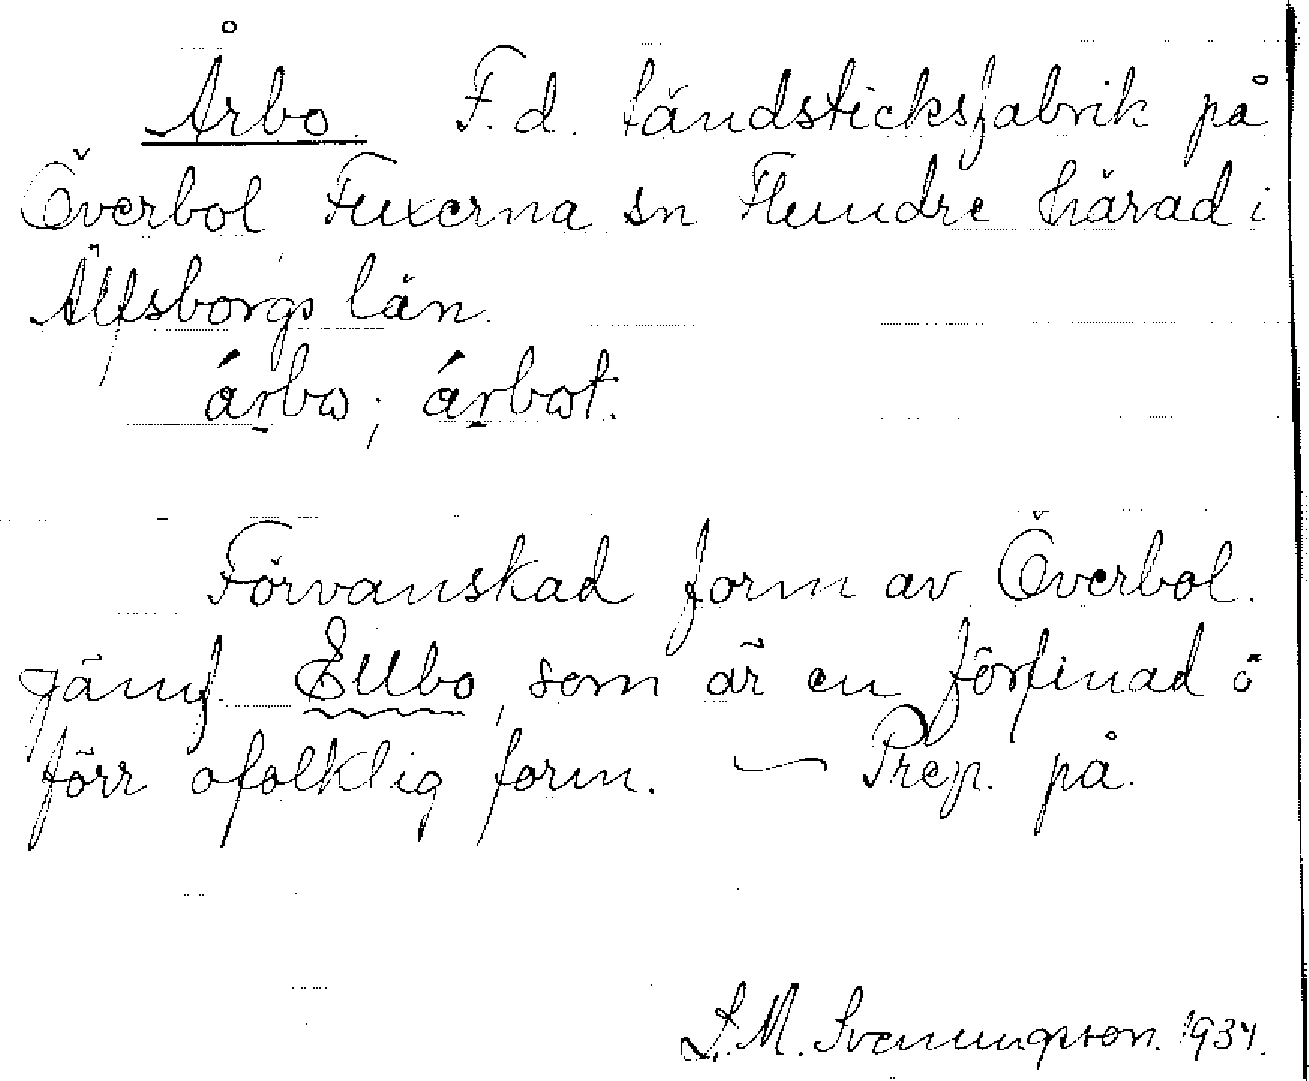 Årbo. F.d. tändsticksfabrik på
Överbol Fuxerna sn Flundre härad i
Älfsborgs län.
árbω; árbωt.
Förvanskad form av Överbol.
Jämf. Ellbo, som är en förfinad o
förr ofolklig form. — Prep. på.
S. M. Svenungsson. 1934.